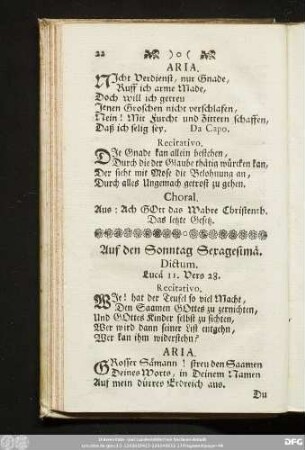 22 )o(
ARIA.
NIcht Verdienst, nur Gnade,
Ruff ich arme Made,
Doch will ich getreu
Jenen Groschen nicht verschlafen,
Nein! Mit Furcht und Zittern schaffen,
Daß ich selig sey. Da Capo.
Recitativo.
DIe Gnade kan allein bestehen,
Durch die der Glaube thätig würcken kan,
Der sieht mit Mose die Belohnung an,
Durch alles Ungemach getrost zu gehen.
Choral.
Aus: Ach GOtt das Wahre Christenth.
Das letzte Gesetz.
Auf den Sonntag Sexagesimä.
Dictum.
Lucä 11. Vers 28.
Recitativo.
WIe! hat der Teufel so viel Macht,
Den Saamen GOttes zu zernichten,
Und GOttes Kinder selbst zu sichten,
Wer wird dann seiner List entgehn,
Wer kan ihm widerstehn?
ARIA.
GRosser Sämann! streu den Saamen
Deines Worts, in Deinem Namen
Auf mein dürres Erdreich aus.
Du